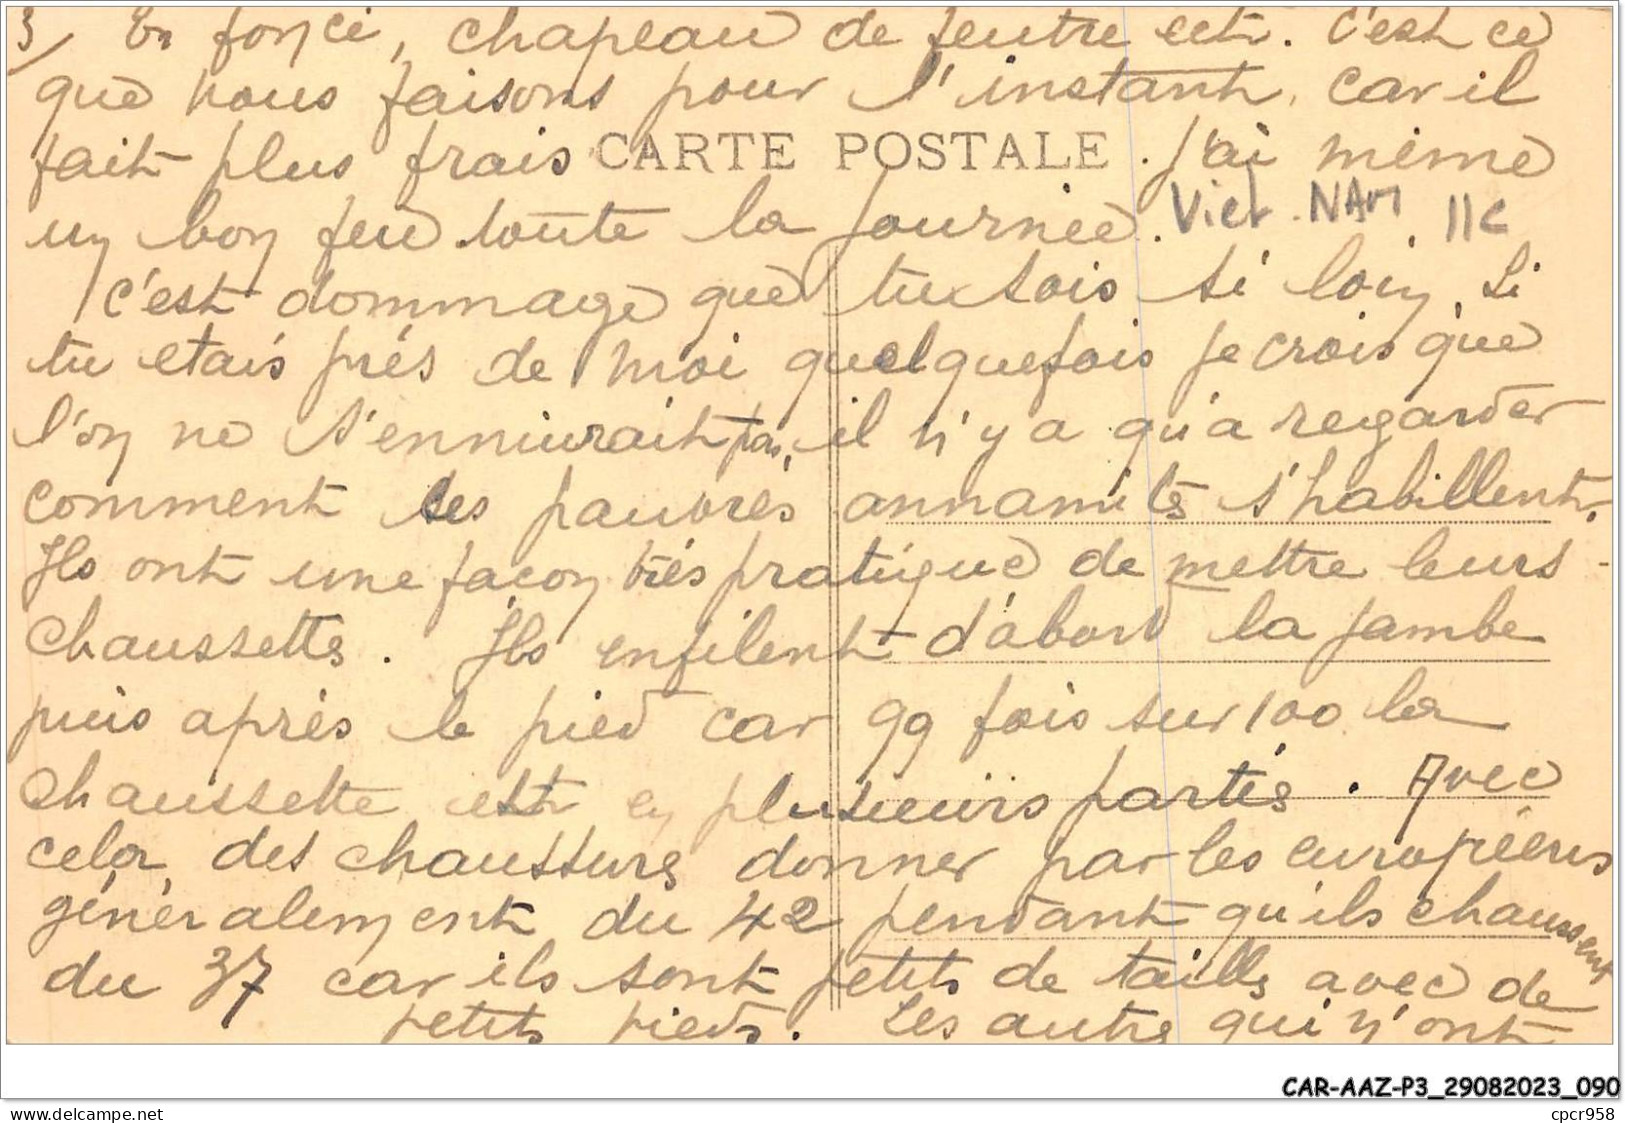 3/ en foncé, chapeau de feutre ect. C'est ce
que nous faisons pour l'instant, car il
fait plus frais CARTE POSTALE. J'ai même
un bon feu toute la journée. Viet. NAM 11c
C'est dommage que tu sois si loin, si
tu étais près de moi quelquefois je crois que
l'on ne s'ennuirait pas, il n'y a qu'à regarder
comment les pauvres annamites s'habillent.
Ils ont une façon très pratique de mettre leurs
chaussettes. Ils enfilent d'abord la jambe
puis après le pied car 99 fois sur 100 la
chaussette est en plusieurs parties. Avec
cela, des chaussures donner par les européens
généralement du 42 pendant qu'ils chaussent
du 37 car ils sont petits de taille avec de
petits pieds. Les autres qui n'ont
CAR-AAZ-P3_29082023_090
www.delcampe.net
cpcr958